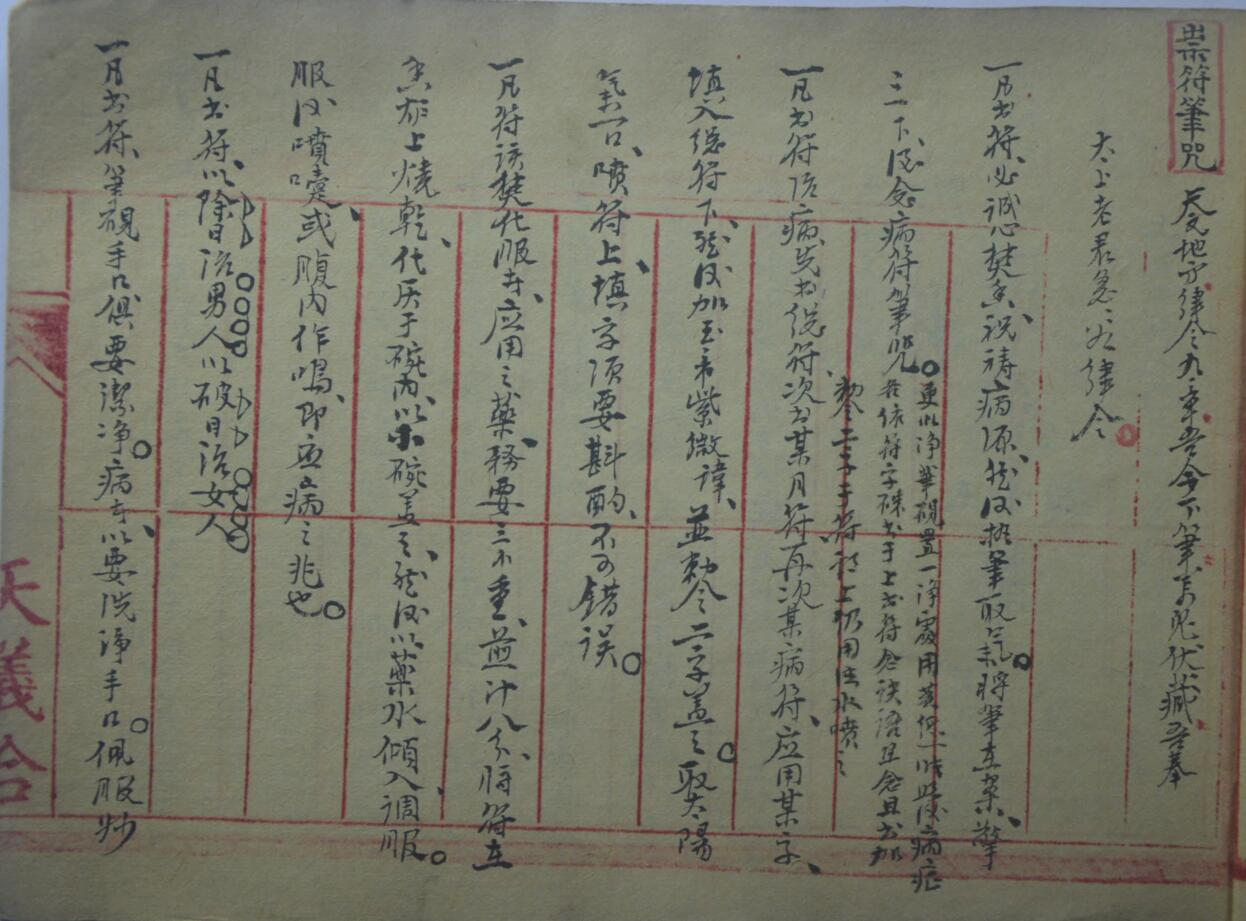 祟符筆咒 天旻地方律令九章吾今下筆万鬼伏藏吾奉
太上老君急急如律令
一凡書符必誠心焚香祝禱病源然后执筆取炁未將筆在案擎
三下後念病符筆咒
更以净筆硯置一淨處用黃紙一時照后病症
若依符字硃书于上书符念诀语且念且书加
勅令二字于符頭上仍用法水噴之
一凡书符治病先书總符次书某月符再次某病符应用某字
填入總符下然后加玉帝紫微諱並勅令二字盖之取太陽
氣一口噴符上填字须要斟酌不可錯误
一凡符該焚化服者应用之藥務要三不重煎汁八分將符在
香炉上燒乾化灰于碗内以小碗盖之然后以藥水傾入調服
服后噴嚏或腹内作鳴即应病之兆也
一凡书符以除日治男人以破日治女人
一凡书符筆硯手口俱要潔净病者以要洗淨手口佩服妙
天義合